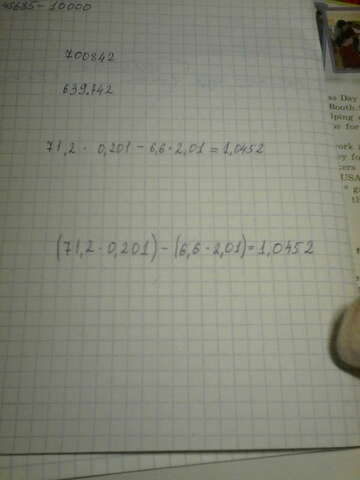 45685 - 10000
700842
639.742
71,2 · 0,201 - 6,6 · 2,01 = 1,0452
(71,2 · 0,201) - (6,6 · 2,01) = 1,0452
ss Day
Booth.
lping
se for
work
ey fo
cers
USA